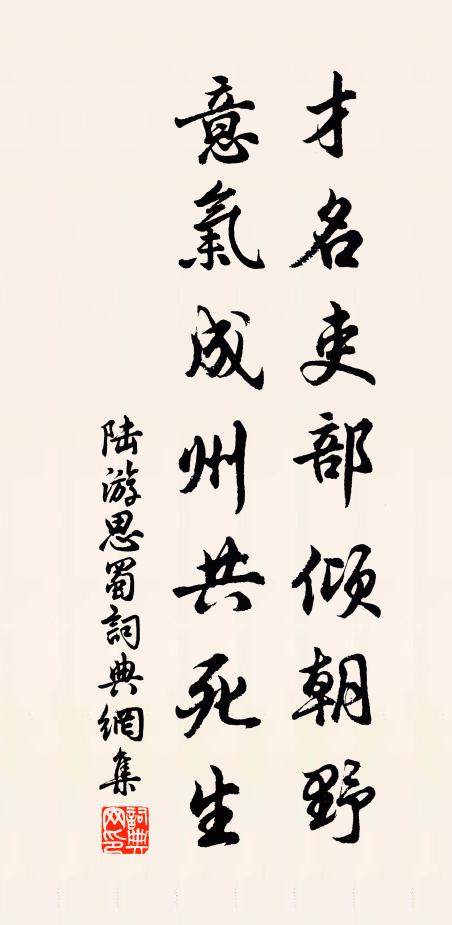 才名吏部傾朝野
意氣成州共死生
陆游思蜀詞典網集
詞典網印